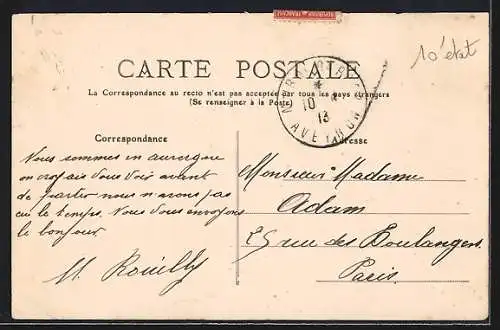 10 état
CARTE POSTALE
La Correspondance au recto n'est pas acceptée par tous les pays étrangers
(Se renseigner à la Poste)
10
13
AVEYRON
Correspondance
Adresse
Nous sommes en auvergne
on croyais vous voir avant
de partir nous n'avons pas
eu le temps. Nous vous envoyons
le bonjour
Rouilly
Monsieur Madame
Adam
25 rue des Boulangers
Paris.